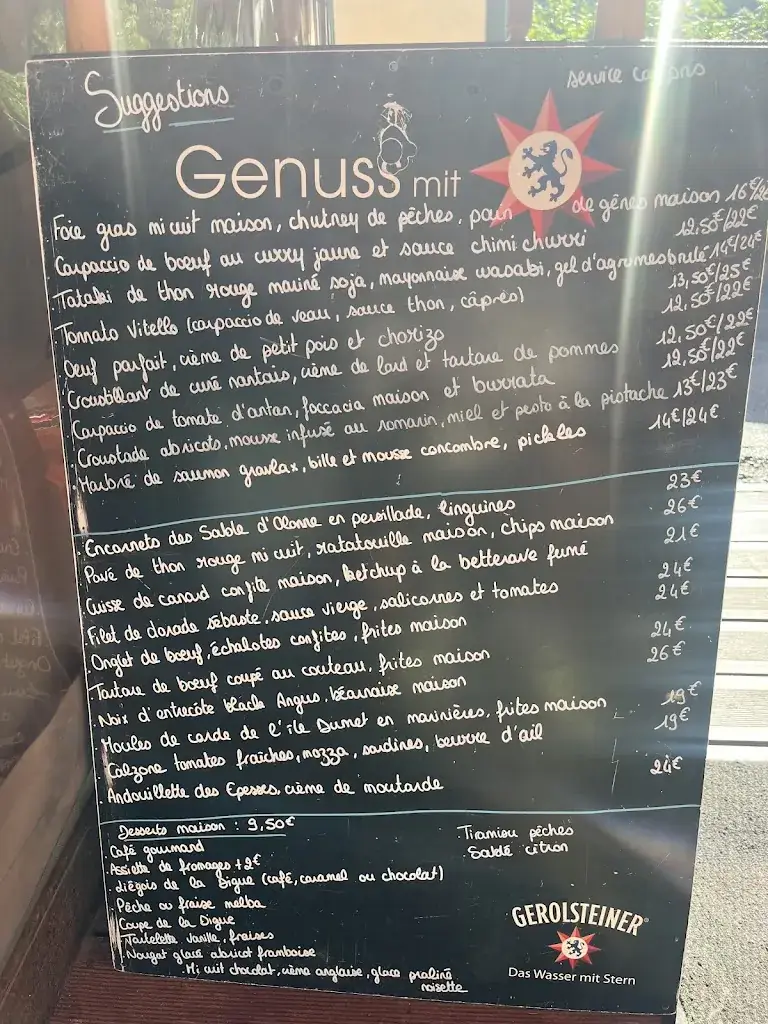 Suggestions
service compris
Genuss mit
Foie gras mi cuit maison, chutney de pêches, pain de gênes maison 16€/26
Carpaccio de boeuf au curry jaune et sauce chimi churri 12,50€/22€
Tataki de thon rouge mariné soja, mayonnaise wasabi, gel d'agrumes brulé 14€/24€
Tomato Vitello (carpaccio de veau, sauce thon, câpres) 13,50€/25€
Oeuf parfait, crème de petit pois et chorizo 12,50€/22€
Croustillant de curé nantais, crème de lard et tartare de pommes 12,50€/22€
Carpaccio de tomate d'antan, foccacia maison et burrata 12,50€/22€
Croustade abricots, mousse infusé au romarin, miel et pesto à la pistache 13€/23€
Marbré de saumon gravlax, bille et mousse concombre, pickles 14€/24€
Encornets des Sable d'Olonne en persillade, linguines 23€
Pavé de thon rouge mi cuit, ratatouille maison, chips maison 26€
Cuisse de canard confite maison, ketchup à la betterave fumé 21€
Filet de dorade sébaste, sauce vierge, salicornes et tomates 24€
Onglet de boeuf, échalotes confites, frites maison 24€
Tartare de boeuf coupé au couteau, frites maison 24€
Noix d'entrecôte black Angus, béarnaise maison 26€
Moules de corde de l'île Dumet en marinières, frites maison 19€
Calzone tomates fraîches, mozza, sardines, beurre d'ail 19€
Andouillette des Epesses, crème de moutarde 24€
Desserts maison : 9,50€
Café gourmand
Assiette de fromages +2€
Liégois de la Digue (café, caramel ou chocolat)
Pêche ou fraise melba
Coupe de la Digue
Tartelette vanille, fraises
Nougat glacé abricot framboise
Mi cuit chocolat, crème anglaise, glace praliné
noisette
Tiramisu pêches
Sablé citron
GEROLSTEINER®
Das Wasser mit Stern